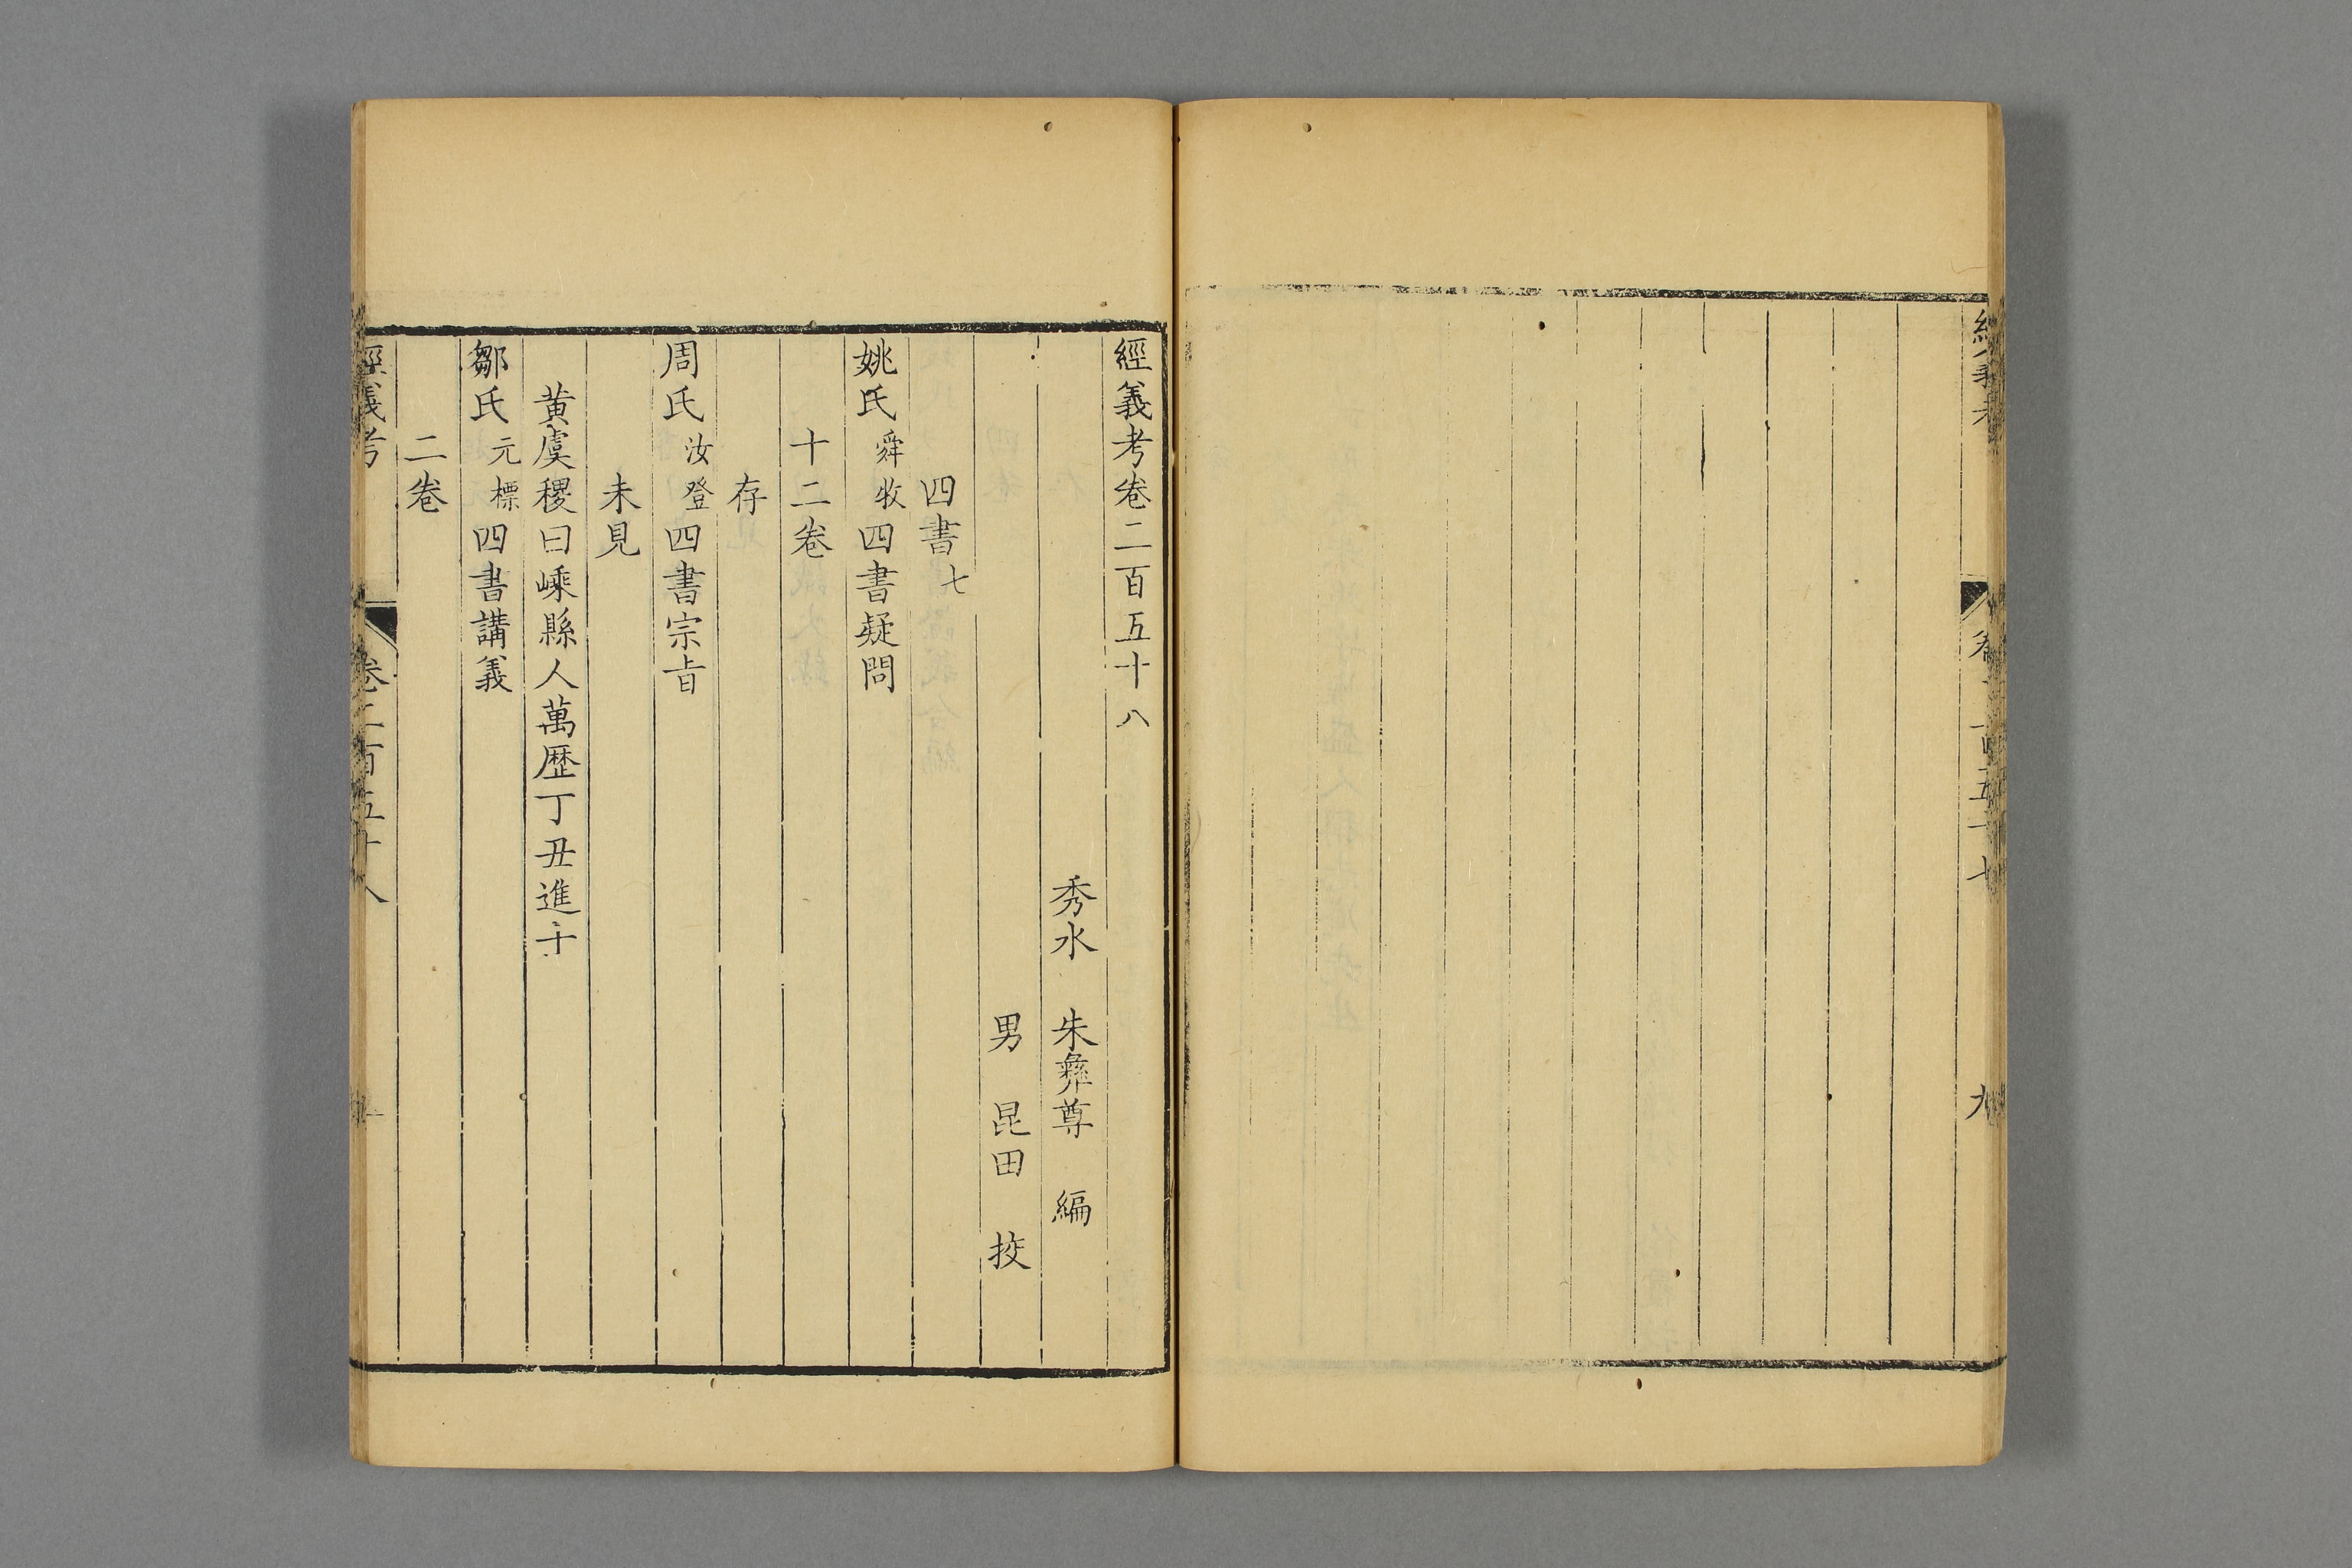 經義考
卷二百五十七
九
經義考卷二百五十八
秀水 朱彝尊 編
男 昆田 挍
四書七
姚氏舜牧四書疑問
十二卷
存
周氏汝登四書宗㫖
未見
黃虞稷曰嵊縣人萬歷丁丑進士
鄒氏元標四書講義
二卷
經義考
卷二百五十八